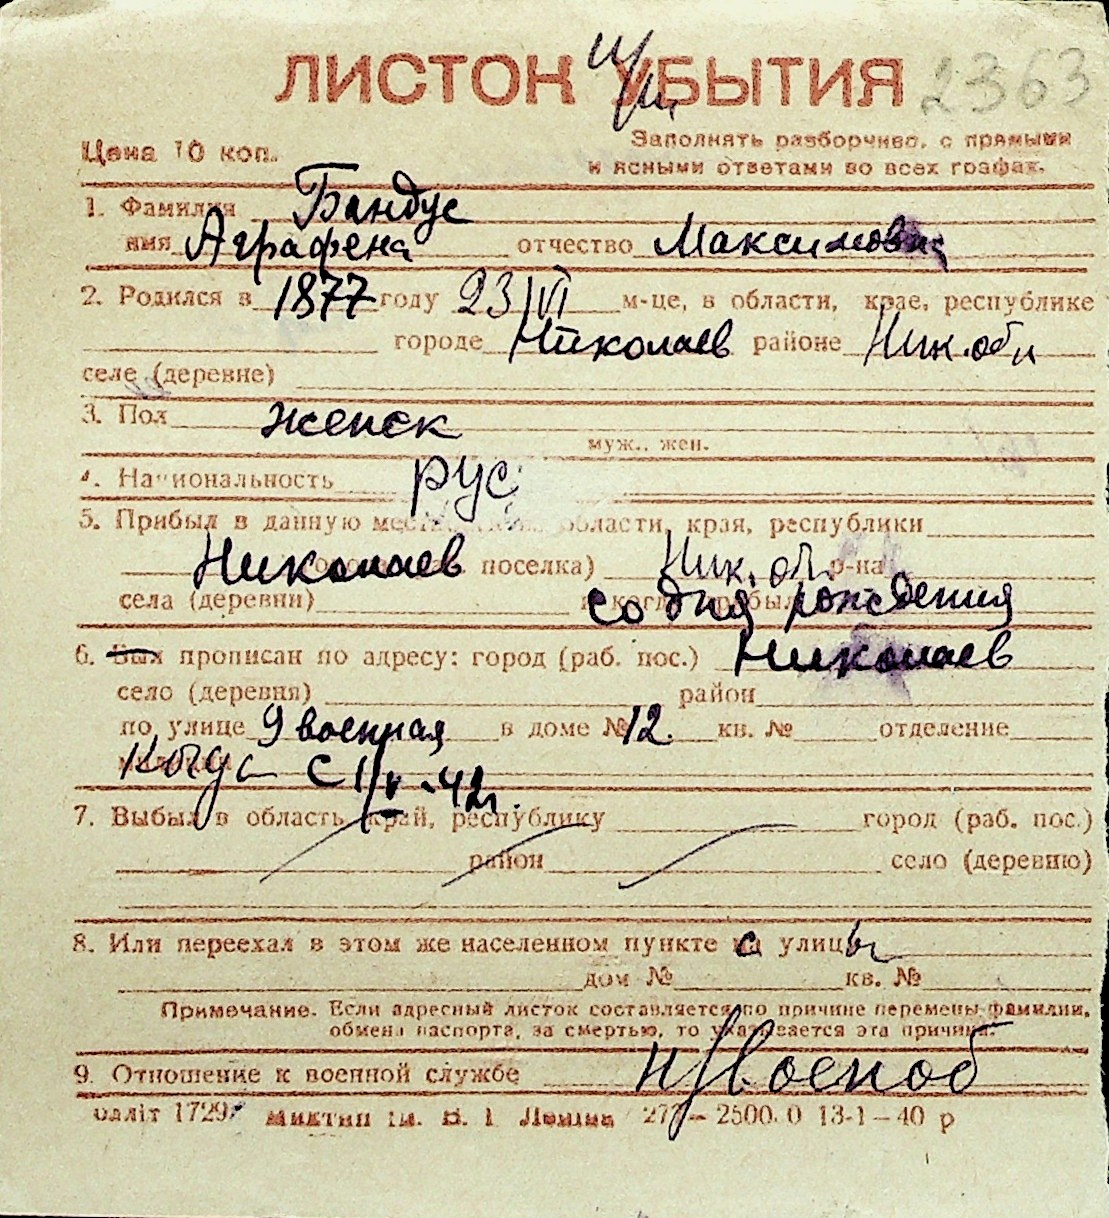 ЛИСТОК УБЫТИЯ 2363
Цена 10 коп.
Заполнять разборчиво, с прямыми
и ясными ответами во всех графах.
1. Фамилия Бандус
имя Аграфена отчество Максимовна
2. Родился в 1877 году 23/VI м-це, в области, крае, республике
городе Николаев районе Ник. обл
селе (деревне)
3. Пол женск
муж., жен.
4. Национальность рус
5. Прибыл в данную области, края, республики
Николаев поселка) Ник. обл. р-на
села (деревни) со дня рождения
6. Был прописан по адресу: город (раб. пос.) Николаев
село (деревня) район
по улице 9 военная в доме № 12. кв. № отделение
Когда с 1/V-42г.
7. Выбыл в область, край, республику город (раб. пос.)
район село (деревню)
8. Или переехал в этом же населенном пункте с улицы
дом № кв. №
Примечание. Если адресный листок составляется по причине перемены фамилии,
обмена паспорта, за смертью, то указывается эта причина.
9. Отношение к военной службе н/военоб
1729. им. В. І. Леніна 277—2500.0 13-1—40 р